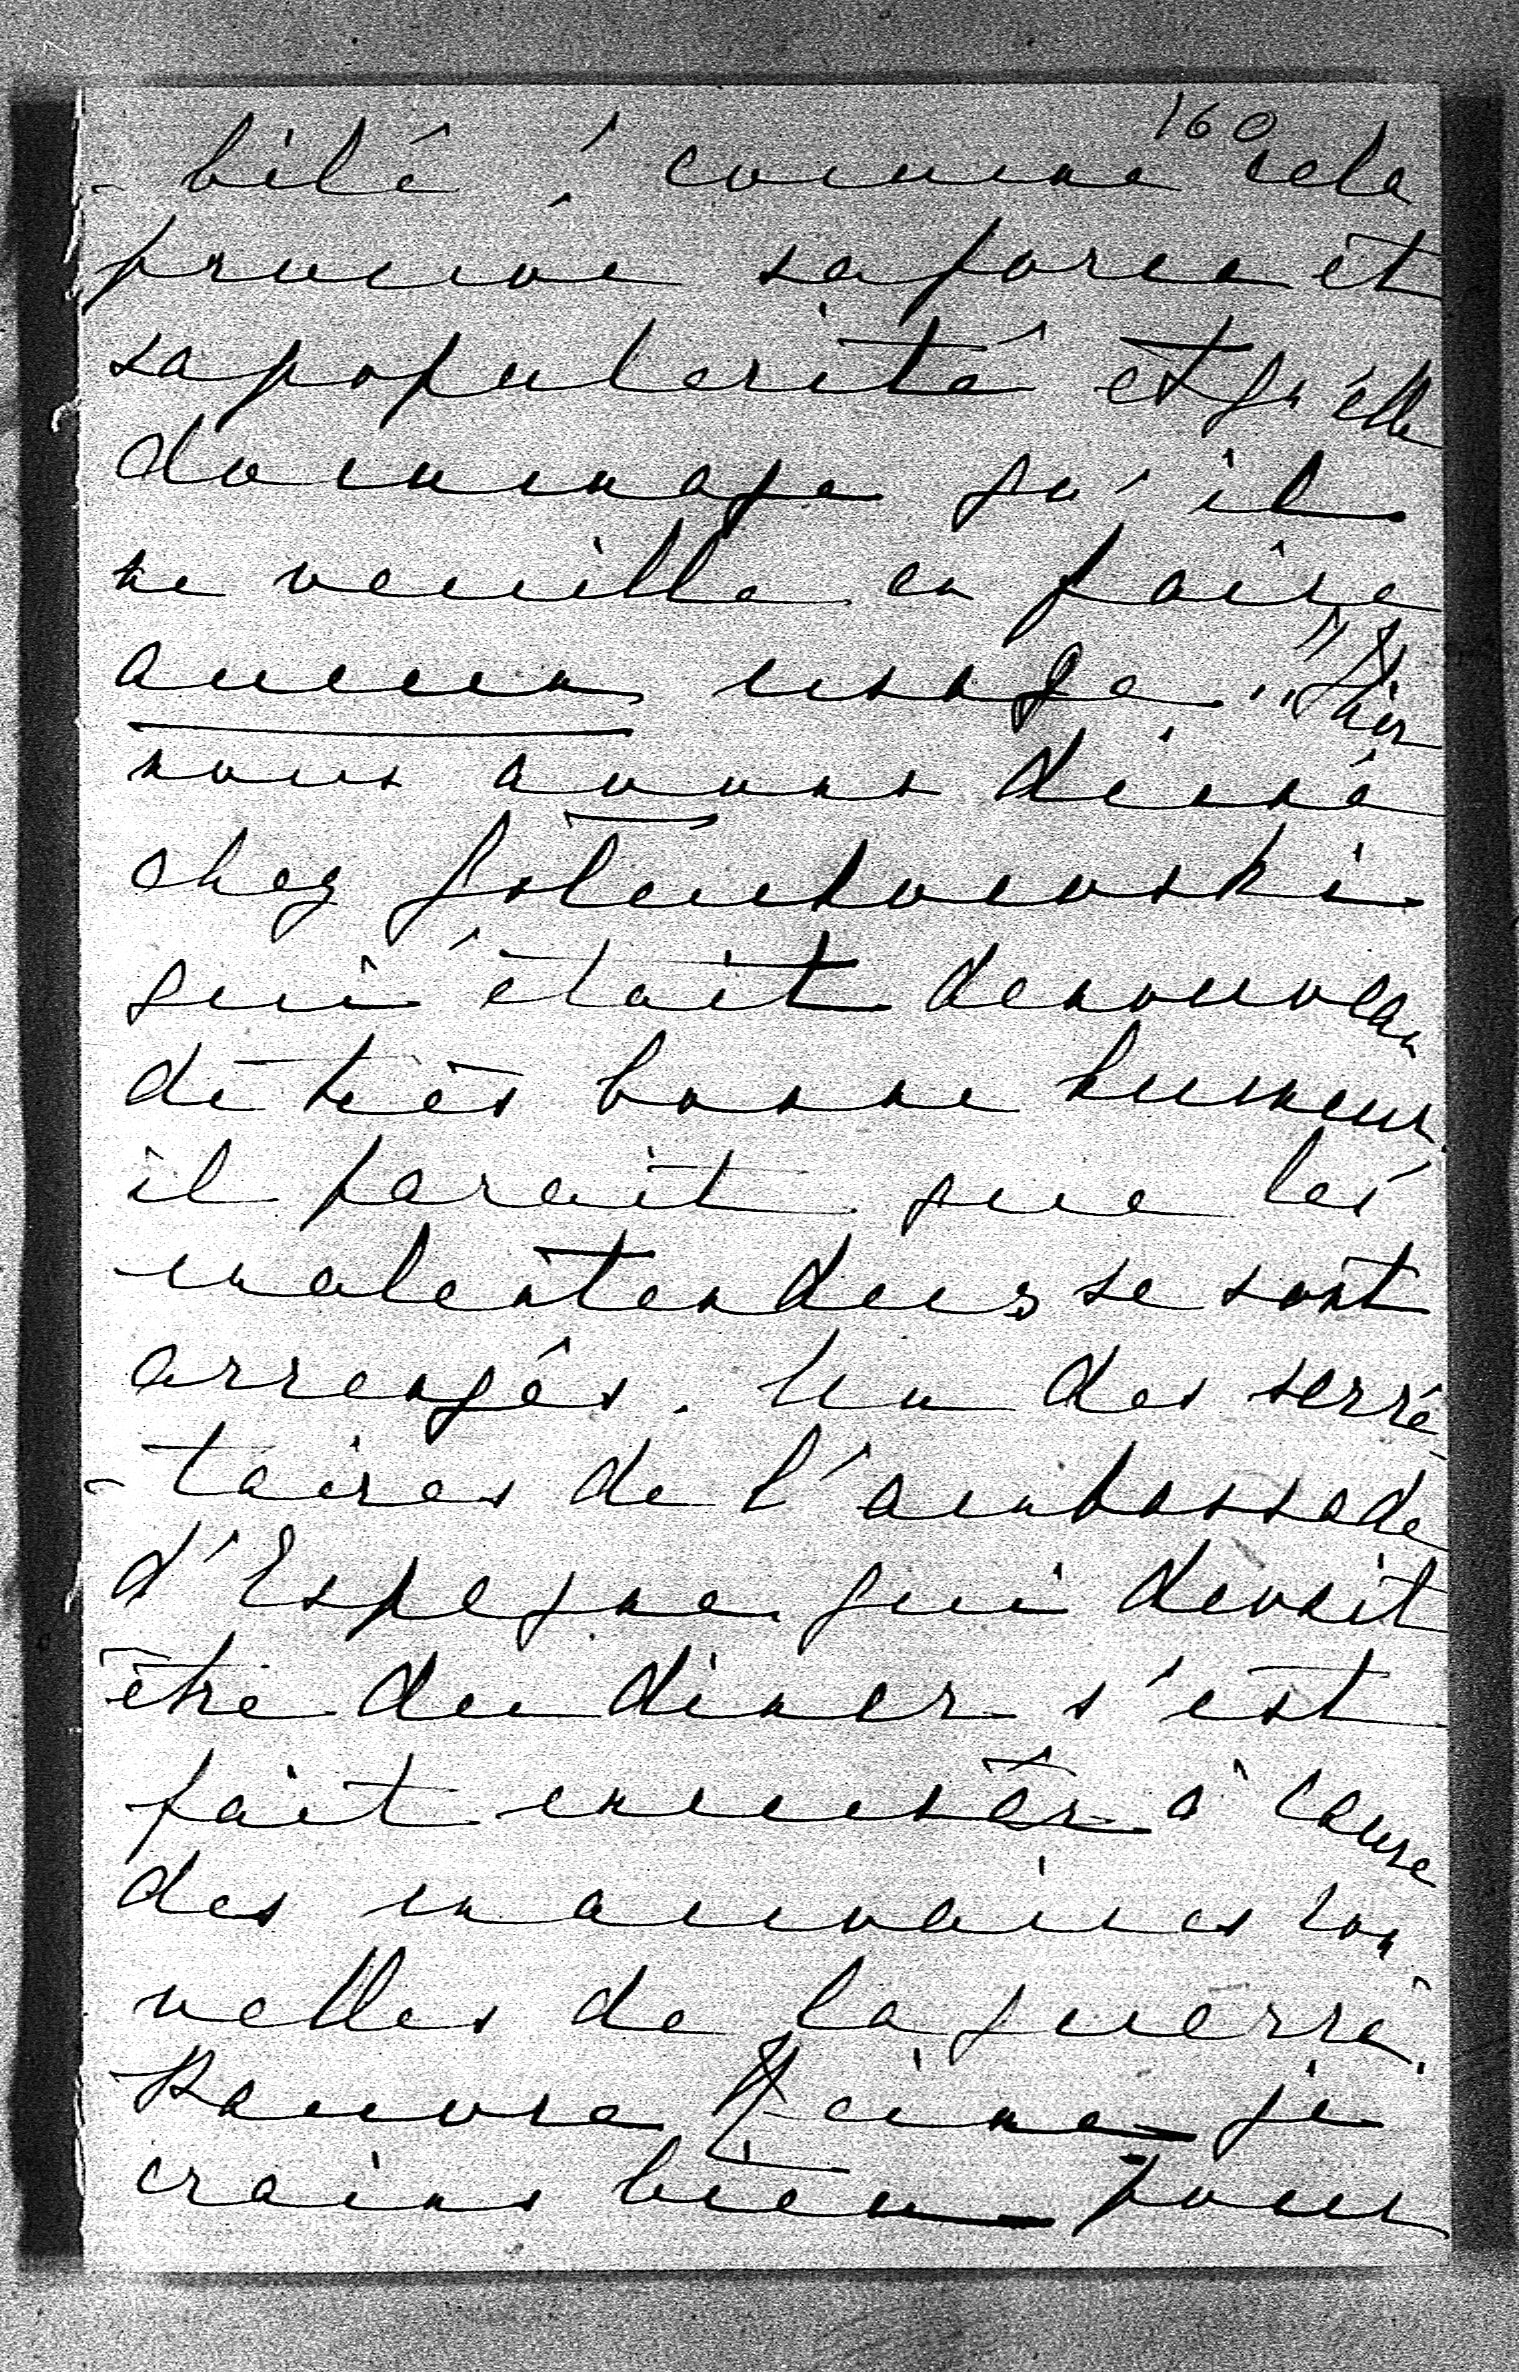 160
- bilé ! comme cela
prouve sa force et
sa popularité et qu'elle
dommage qu'il
ne veuille en faire
aucun usage." Hier
nous avons dîné
chez Goluchowski
qui était denouveau
de très bonne humeur.
il parait que les
malentendus se sont
arrangés. Un des serré-
- taires de l'ambassade
d'Espagne qui devait
être du diner s'est
fait excuser à cause
des mauvaises nou
velles de la guerre.
Pauvre Reine je
crains bien pour